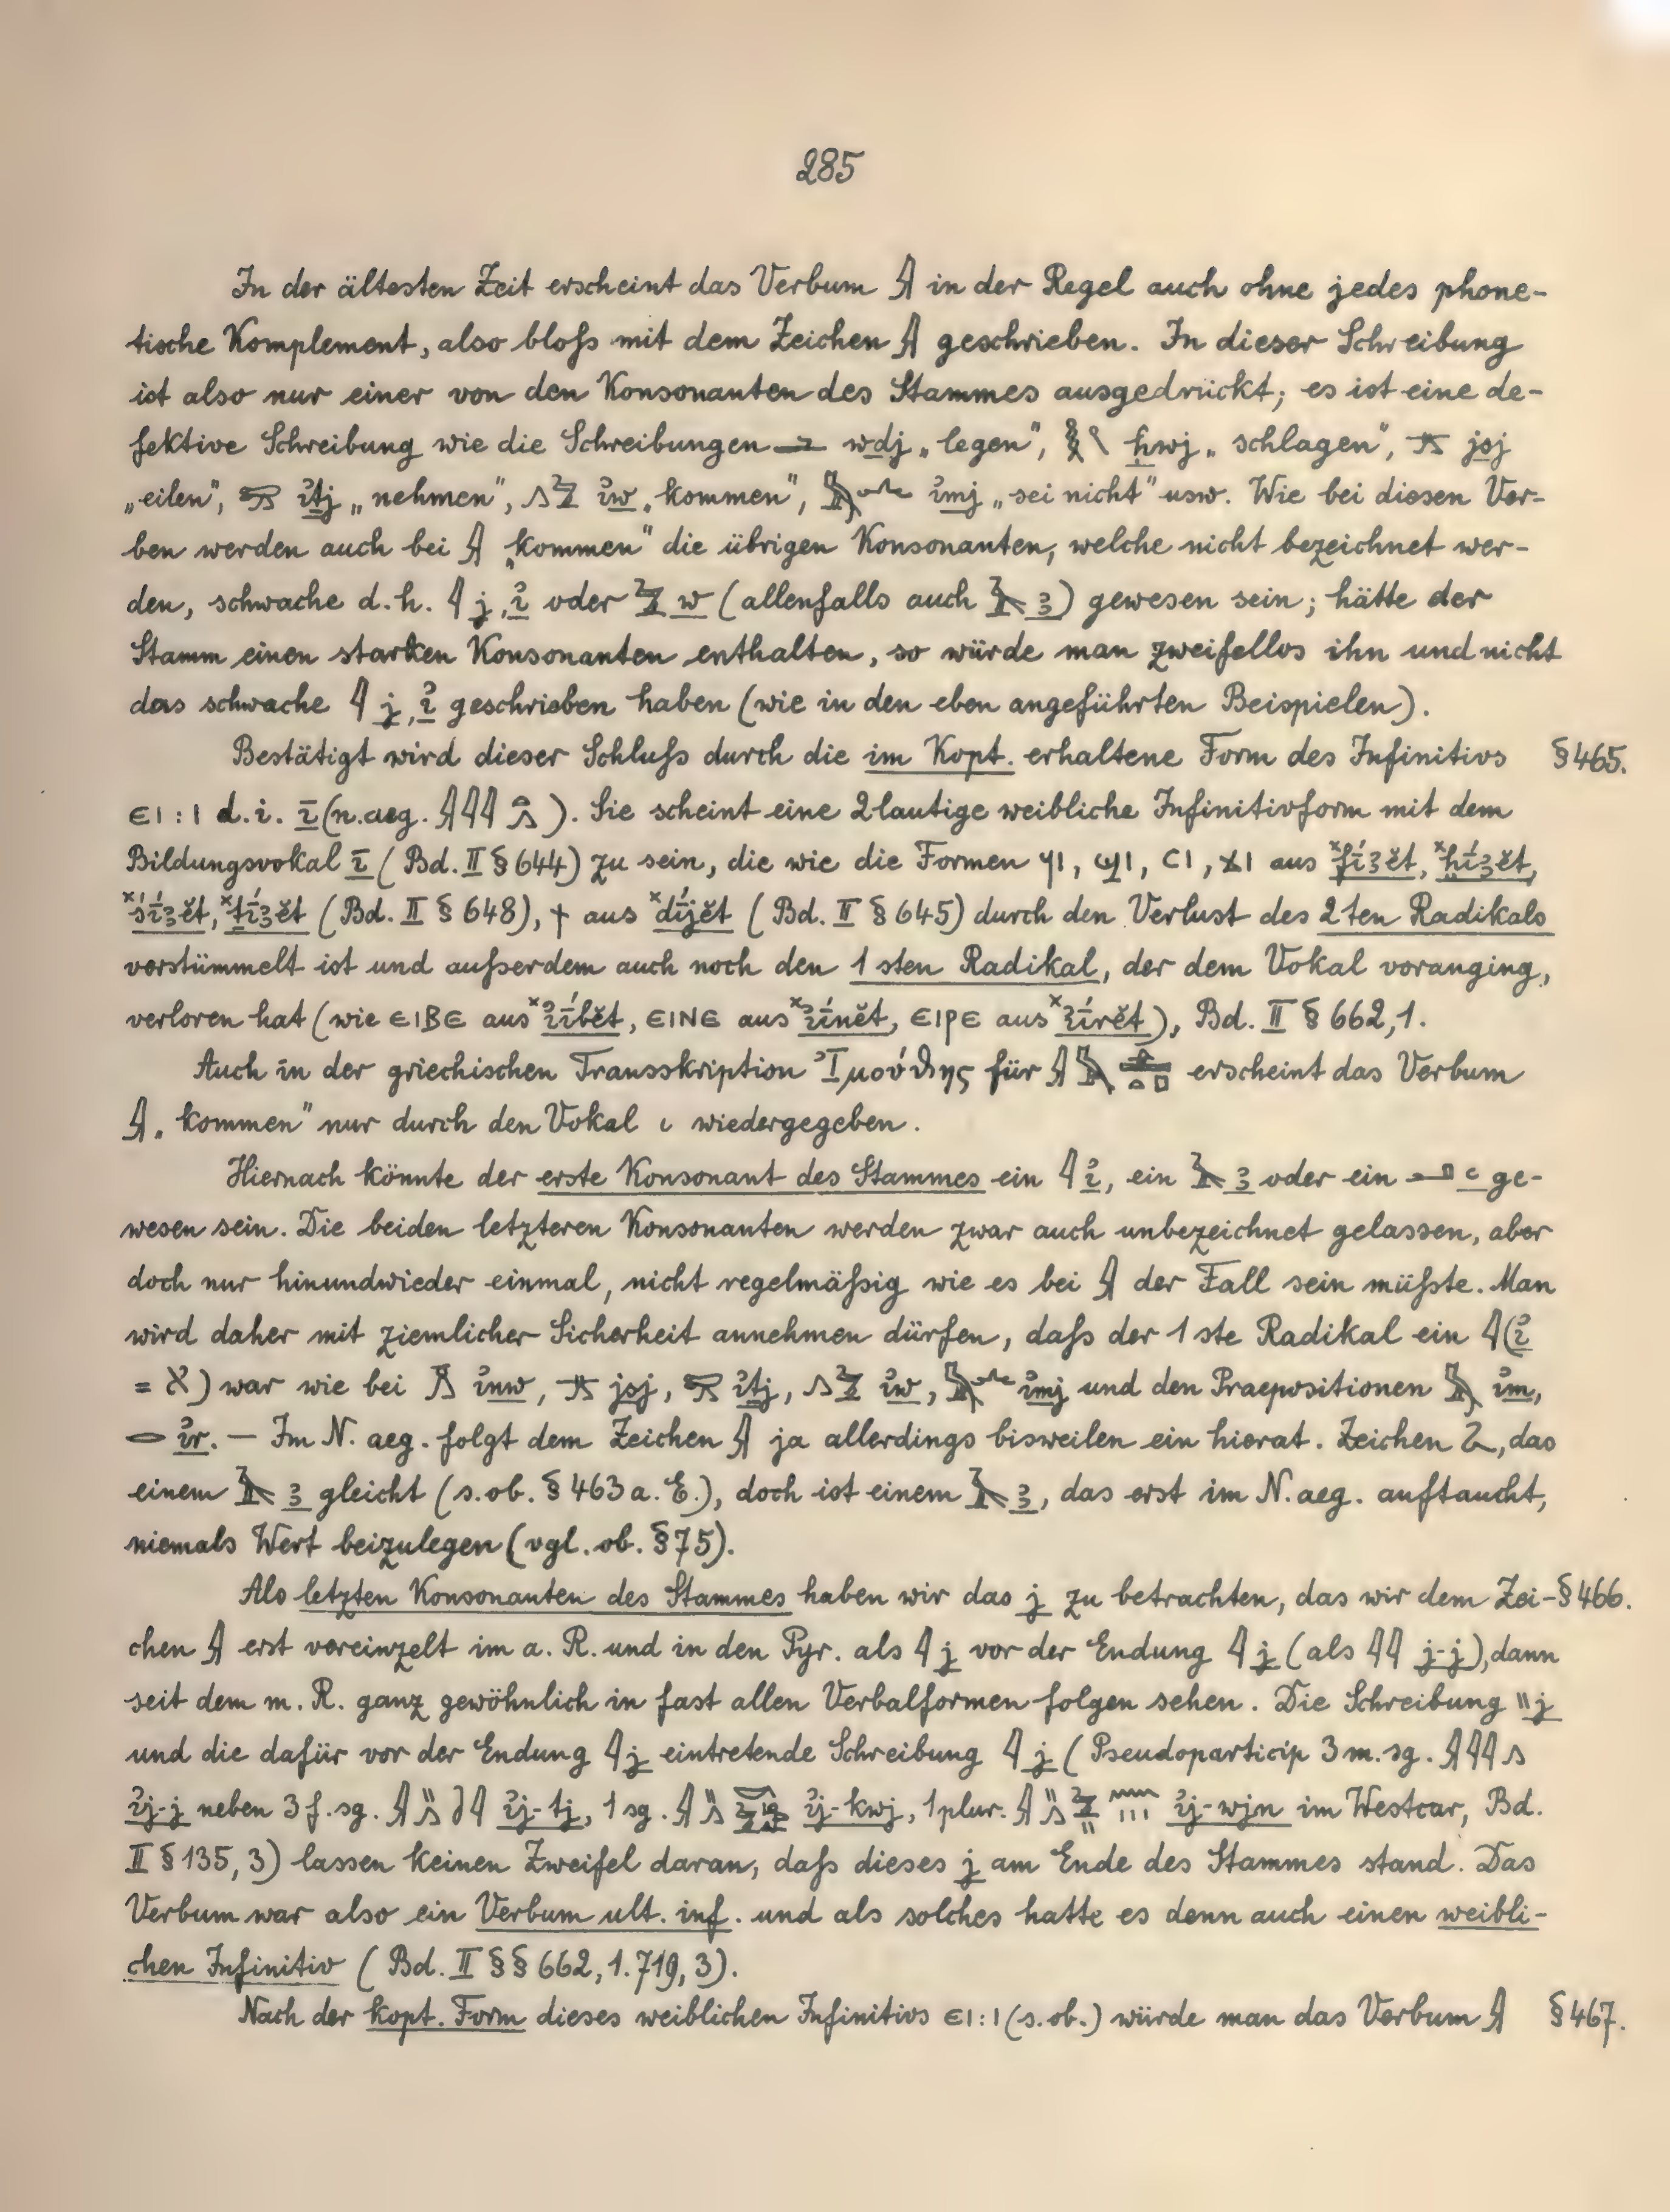 285
In der ältesten Zeit erscheint das Verbum 𓇍 in der Regel auch ohne jedes phone-
tische Komplement, also bloß mit dem Zeichen 𓇍 geschrieben. In dieser Schreibung
ist also nur einer von den Konsonanten des Stammes ausgedrückt; es ist eine de-
fektive Schreibung wie die Schreibungen wdj „legen", ḥwj „schlagen", jsj
„eilen", ꞽṯj „nehmen", 𓂻𓅱 ꞽw „kommen", 𓅓 ꞽmj „sei nicht" usw. Wie bei diesen Ver-
ben werden auch bei 𓇍 „kommen" die übrigen Konsonanten, welche nicht bezeichnet wer-
den, schwache d.h. 𓇋 j, ꞽ oder 𓅱 w (allenfalls auch 𓄿 ꜣ) gewesen sein; hätte der
Stamm einen starken Konsonanten enthalten, so würde man zweifellos ihn und nicht
das schwache 𓇋 j, ꞽ geschrieben haben (wie in den eben angeführten Beispielen).
Bestätigt wird dieser Schluß durch die im Kopt. erhaltene Form des Infinitivs §465.
ⲉⲓ : ⲓ d. i. ī (n. aeg. 𓇍𓇋𓇋𓂻). Sie scheint eine 2lautige weibliche Infinitivform mit dem
Bildungsvokal ī (Bd. II § 644) zu sein, die wie die Formen ϥⲓ, ϣⲓ, ⲥⲓ, ϫⲓ aus ˣfíꜣĕt, ˣḫíꜣĕt,
ˣśíꜣĕt, ˣṯíꜣĕt (Bd. II § 648), ϯ aus ˣdíjĕt (Bd. II § 645) durch den Verlust des 2ten Radikals
verstümmelt ist und außerdem auch noch den 1sten Radikal, der dem Vokal voranging,
verloren hat (wie ⲉⲓⲃⲉ aus ˣꞽíbĕt, ⲉⲓⲛⲉ aus ˣꞽínĕt, ⲉⲓⲣⲉ aus ˣꞽírĕt), Bd. II § 662,1.
Auch in der griechischen Transskription Ἰμούθης für 𓇍𓅓𓊵𓏏𓊪 erscheint das Verbum
𓇍 „kommen" nur durch den Vokal ι wiedergegeben.
Hiernach könnte der erste Konsonant des Stammes ein 𓇋 ꞽ, ein 𓄿 ꜣ oder ein 𓂝 ꜥ ge-
wesen sein. Die beiden letzteren Konsonanten werden zwar auch unbezeichnet gelassen, aber
doch nur hinundwieder einmal, nicht regelmäßig wie es bei 𓇍 der Fall sein müßte. Man
wird daher mit ziemlicher Sicherheit annehmen dürfen, daß der 1ste Radikal ein 𓇋 (ꞽ
= א) war wie bei 𓏎 ꞽnw, jsj, ꞽṯj, 𓂻𓅱 ꞽw, 𓅓 ꞽmj und den Praepositionen 𓅓 ꞽm,
𓂋 ꞽr. – Im N. aeg. folgt dem Zeichen 𓇍 ja allerdings bisweilen ein hierat. Zeichen, das
einem 𓄿 ꜣ gleicht (s. ob. § 463 a. E.), doch ist einem 𓄿 ꜣ, das erst im N. aeg. auftaucht,
niemals Wert beizulegen (vgl. ob. § 75).
Als letzten Konsonanten des Stammes haben wir das j zu betrachten, das wir dem Zei- § 466.
chen 𓇍 erst vereinzelt im a. R. und in den Pyr. als 𓇋 j vor der Endung 𓇋 j (als 𓇋𓇋 j-j), dann
seit dem m. R. ganz gewöhnlich in fast allen Verbalformen folgen sehen. Die Schreibung \\ j
und die dafür vor der Endung 𓇋 j eintretende Schreibung 𓇋 j (Pseudoparticip 3 m. sg. 𓇍𓇋𓇋𓂻
ꞽj-j neben 3 f. sg. 𓇍𓏭𓂻𓏏𓇋 ꞽj-tj, 1 sg. 𓇍𓏭𓂻 ꞽj-kwj, 1 plur. 𓇍𓏭𓂻𓅱𓏭𓈖𓏥 ꞽj-wjn im Westcar, Bd.
II § 135, 3) lassen keinen Zweifel daran, daß dieses j am Ende des Stammes stand. Das
Verbum war also ein Verbum ult. inf. und als solches hatte es denn auch einen weibli-
chen Infinitiv (Bd. II §§ 662, 1. 719, 3).
Nach der kopt. Form dieses weiblichen Infinitivs ⲉⲓ : ⲓ (s. ob.) würde man das Verbum 𓇍 § 467.